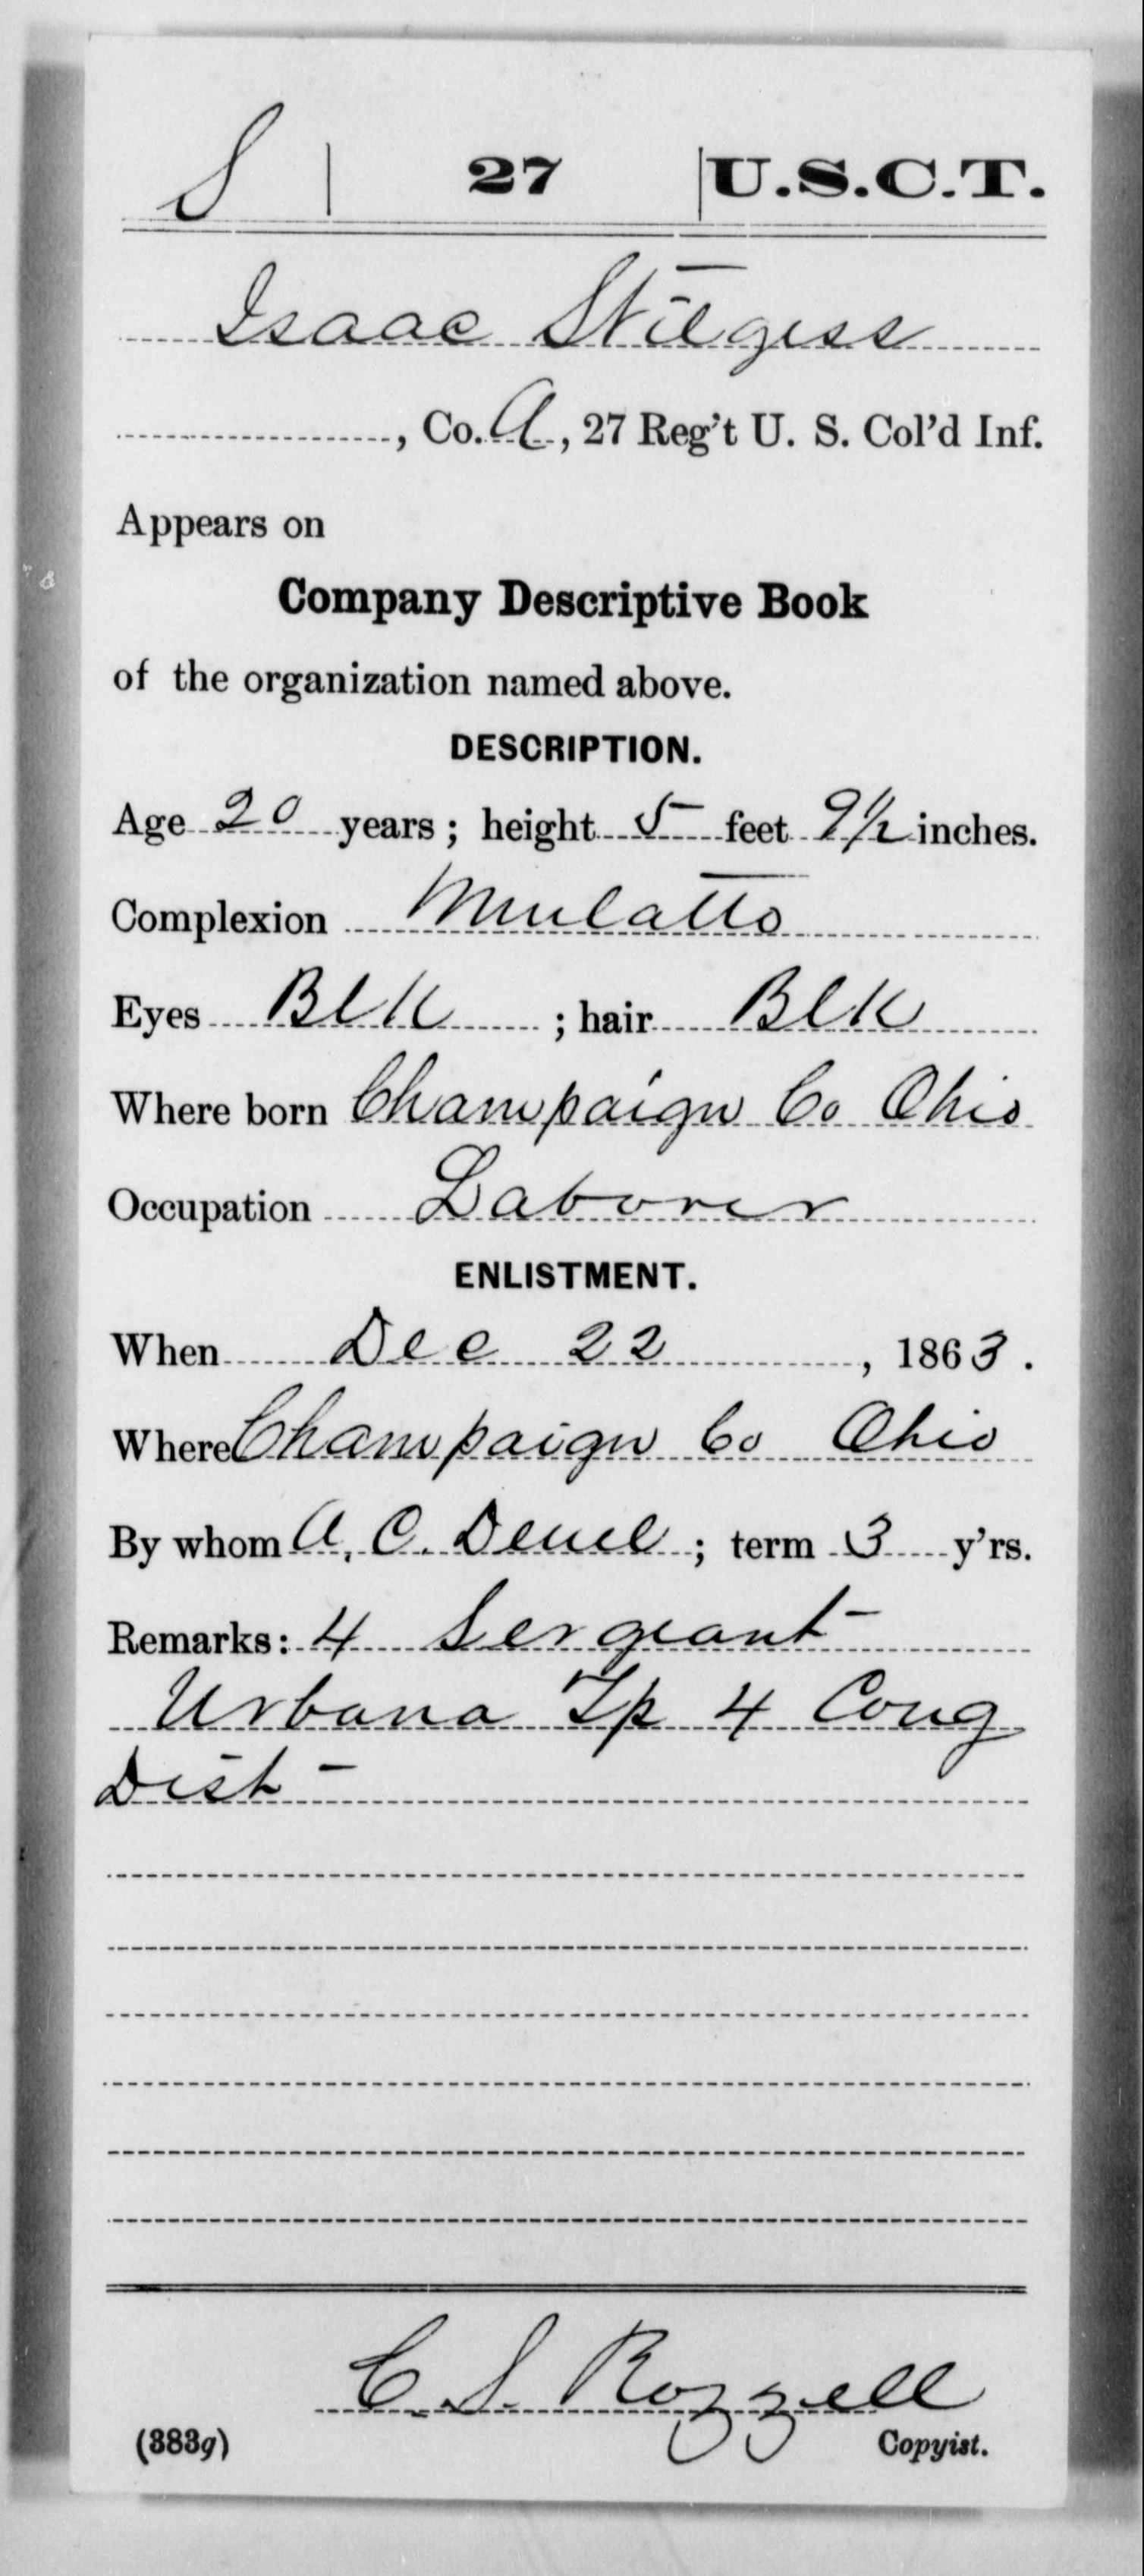 S | 27 | U.S.C.T.
Isaac Stilgess
, Co. A, 27 Reg't U. S. Col'd Inf.
Appears on
Company Descriptive Book
of the organization named above.
DESCRIPTION.
Age 20 years; height 5 feet 9½ inches.
Complexion Mulatto
Eyes Blk ; hair Blk
Where born Champaign Co Ohio
Occupation Laborer
ENLISTMENT.
When Dec 22, 1863.
Where Champaign Co Ohio
By whom A. C. Deuel; term 3 y'rs.
Remarks: 4 Sergeant
Urbana Tp 4 Cong
Dist
C. S. Rozzell
(383g) Copyist.